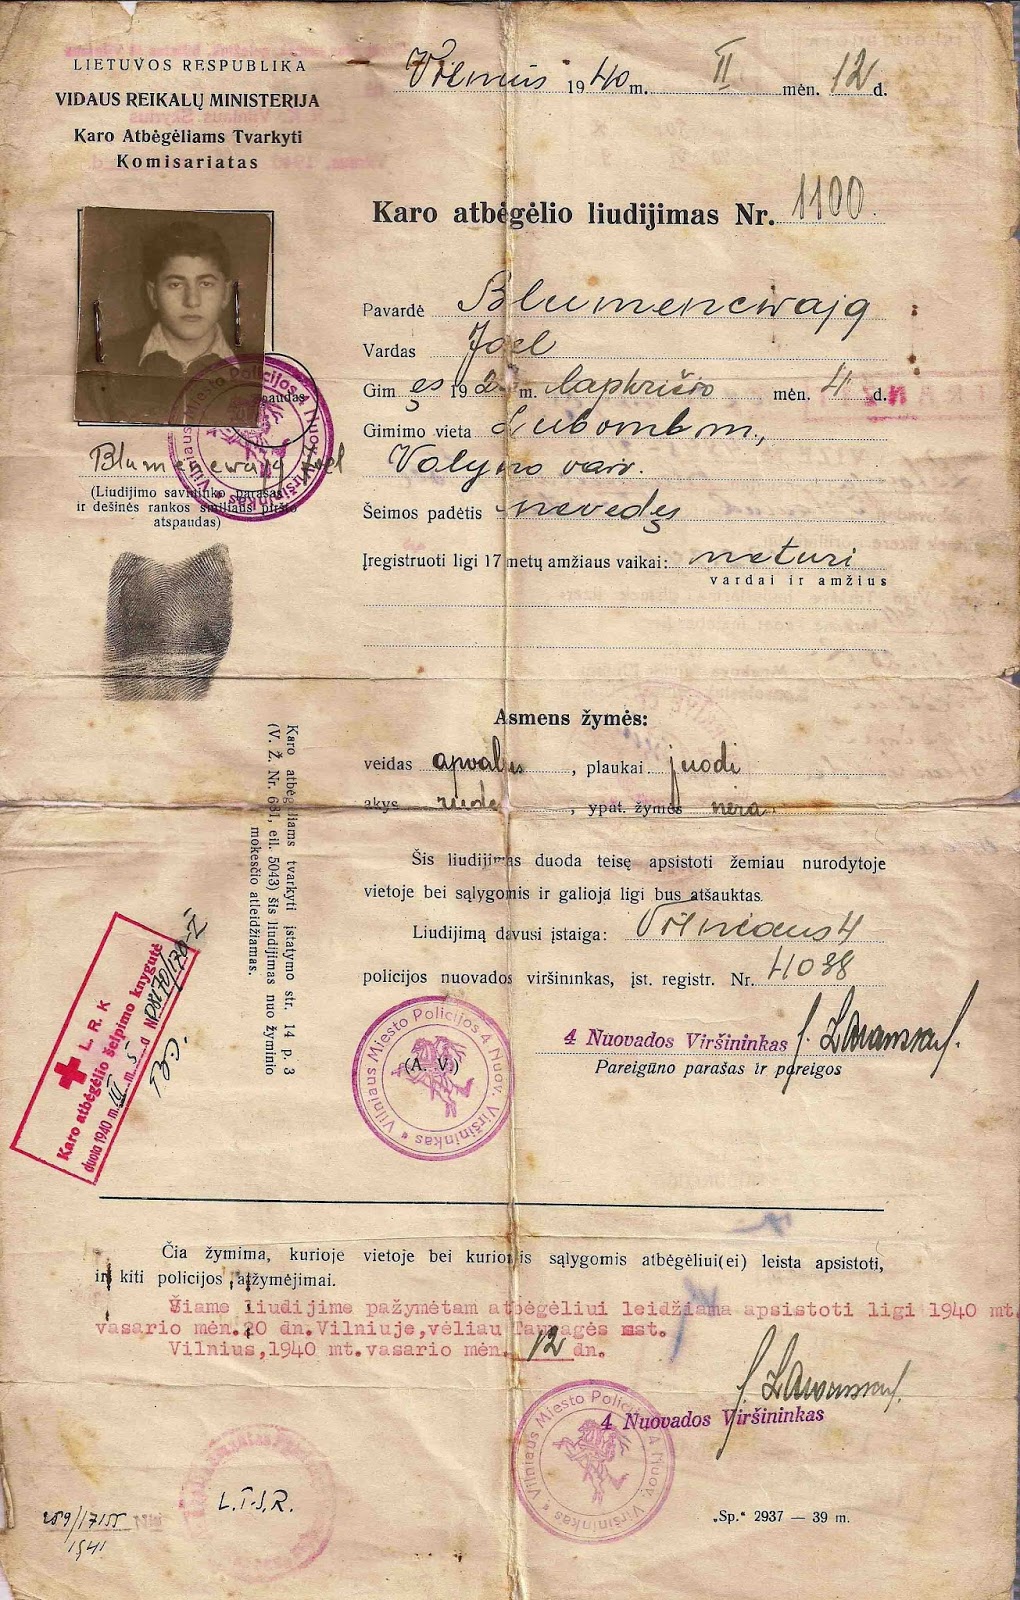 LIETUVOS RESPUBLIKA
VIDAUS REIKALŲ MINISTERIJA
Karo Atbėgėliams Tvarkyti
Komisariatas
Vilnius 1940 m. II mėn. 12 d.
Karo atbėgėlio liudijimas Nr. 1100
Pavardė Blumencwajg
Vardas Joel
Gim ęs 192 m. lapkričio mėn. 4 d.
Gimimo vieta Luboml m.,
Valyno vaiv.
Šeimos padėtis nevedęs
Įregistruoti ligi 17 metų amžiaus vaikai: neturi
vardai ir amžius
Blumencwajg Joel
(Liudijimo savininko parašas
ir dešinės rankos smiliaus piršto
atspaudas)
Vilniaus Miesto Policijos 4 Nuov. Viršininkas
Asmens žymės:
veidas apvalus, plaukai juodi
akys rudos, ypat. žymės nėra
Šis liudijimas duoda teisę apsistoti žemiau nurodytoje
vietoje bei sąlygomis ir galioja ligi bus atšauktas.
Liudijimą davusi įstaiga: Vilniaus 4
policijos nuovados viršininkas, įst. registr. Nr. 4038
4 Nuovados Viršininkas
Pareigūno parašas ir pareigos
Karo atbėgėliams tvarkyti įstatymo str. 14 p. 3
(V. Ž. Nr. 631, eil. 5043) šis liudijimas nuo žyminio
mokesčio atleidžiamas.
L. R. K
Karo atbėgėlio šelpimo knygutė
duota 1940 m. III m. 5 d N
(A. V.)
Vilniaus Miesto Policijos 4 Nuov. Viršininkas
Čia žymima, kurioje vietoje bei kuriomis sąlygomis atbėgėliui(ei) leista apsistoti,
ir kiti policijos atžymėjimai.
Šiame liudijime pažymėtam atbėgėliui leidžiama apsistoti ligi 1940 mt.
vasario mėn. 20 dn. Vilniuje, vėliau Tauragės mst.
Vilnius, 1940 mt. vasario mėn. 12 dn.
4 Nuovados Viršininkas
Vilniaus Miesto Policijos 4 Nuov. Viršininkas
L.T.S.R.
1941
„Sp.“ 2937 — 39 m.